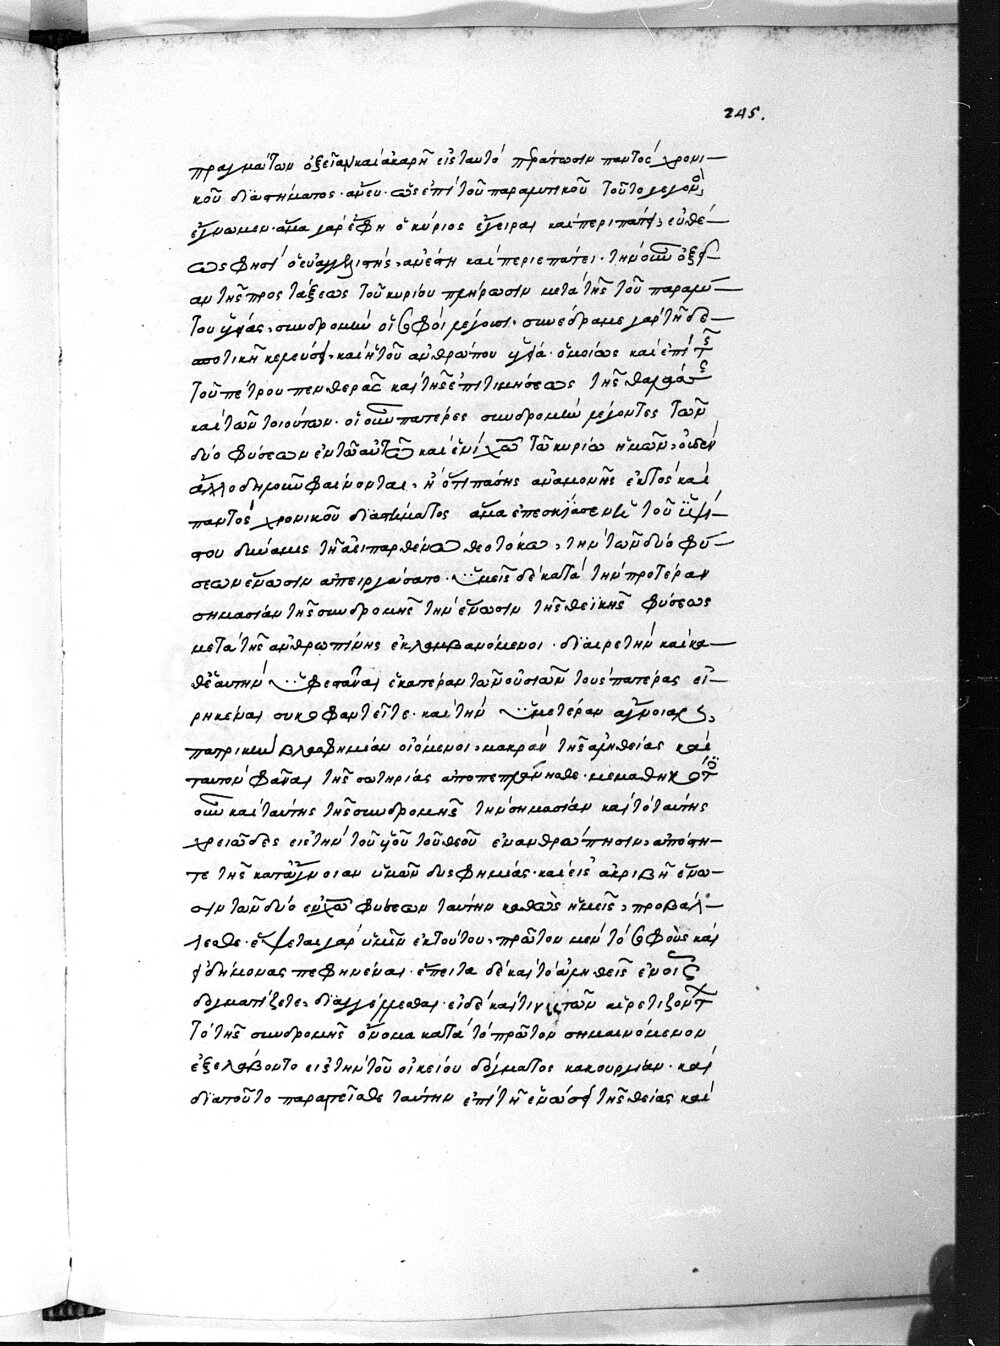 245.
πραγμάτων ὀξεῖαν καὶ ἀκαρῆ εἰς ταυτὸ παντὸς χρονι-
κοῦ διαστήματος ἄνευ· ὡς ἐπὶ τοῦ παραλυτικοῦ τοῦτο γεγονὸς
ἔγνωμεν· ἅμα γὰρ ἔφη ὁ κύριος ἔγειραι καὶ περιπάτει, εὐθέ-
ως φησὶν ὁ εὐαγγελιστής, ἀνέστη καὶ περιεπάτει· τὴν οὖν ὀξεῖ-
αν τῆς προστάξεως τοῦ κυρίου πλήρωσιν μετὰ τῆς τοῦ παραλύ-
του ὑγείας, συνδρομὴν οἱ σοφοὶ λέγουσι, συνέδραμε γὰρ τῇ δε-
σποτικῇ κελεύσει, καὶ ἡ τοῦ ἀνθρώπου ὑγεία· ὁμοίως καὶ ἐπὶ τῆς
τοῦ πέτρου πενθερᾶς καὶ τῆς ἐπιτιμήσεως τῆς θαλάσσης
καὶ τῶν τοιούτων· οἱ οὖν πατέρες συνδρομὴν λέγοντες τῶν
δύο φύσεων ἐν τῶ αὐτῶ καὶ ἑνὶ χω τῶ κυρίω ἡμῶν, οὐδὲν
ἄλλο δηλοῦν φαίνονται, ἢ ὅτι πάσης ἀναμονῆς ἐκτὸς καὶ
παντὸς χρονικοῦ διαστήματος ἅμα ἐπεσκίασεν ἡ τοῦ ὑψί-
στου δύναμις τῇ ἀειπαρθένω θεοτόκω, τὴν τῶν δύο φύ-
σεων ἕνωσιν ἀπειργάσατο· ὑμεῖς δὲ κατὰ τὴν προτέραν
σημασίαν τῆς συνδρομῆς τὴν ἕνωσιν τῆς θεϊκῆς φύσεως
μετὰ τῆς ἀνθρωπίνης ἐκλαμβανόμενοι· διαιρετὴν καὶ κα-
θ' ἑαυτὴν ὑφεστάναι ἑκατέραν τῶν οὐσιῶν τοὺς πατέρας εἰ-
ρηκέναι συκοφαντεῖτε· καὶ τὴν ὑμετέραν ἄγνοιαν,
πατρικὴν βλασφημίαν οἰόμενοι, μακρὰν τῆς ἀληθείας καὶ
ταυτὸν φάναι τῆς σωτηρίας ἀποπεπλάνησθε· μεμαθηκότες
οὖν καὶ ταύτης τῆς συνδρομῆς τὴν σημασίαν καὶ τὸ ταύτης
χρειῶδες εἰς τὴν τοῦ υἱοῦ τοῦ θεοῦ ἐνανθρώπησιν, ἀπόστη-
τε τῆς κατ' ἄγνοιαν ὑμῶν δυσφημίας· καὶ εἰς ἀκριβῆ ἕνω-
σιν τῶν δύο ἐν χω φύσεων ταύτην καθὼς ἡμεῖς, προβάλ-
λεσθε· ἕψεται γὰρ ὑμῖν ἐκ τούτου, πρῶτον μὲν τὸ σοφοὺς καὶ
πεφηνέναι· ἔπειτα δὲ καὶ τὸ ἀληθεῖς ἐν οἷς
δογματίζετε, διαγγέλλεσθαι· εἰ δὲ καὶ τινὲς τῶν αἱρετιζόντων
τὸ τῆς συνδρομῆς ὄνομα κατὰ τὸ πρῶτον σημαινόμενον
ἐξελάβοντο εἰς τὴν τοῦ οἰκείου δόγματος κακουργίαν· καὶ
διατοῦτο παραιτεῖσθε ταύτην ἐπὶ τῇ ἑνώσει τῆς θείας καὶ